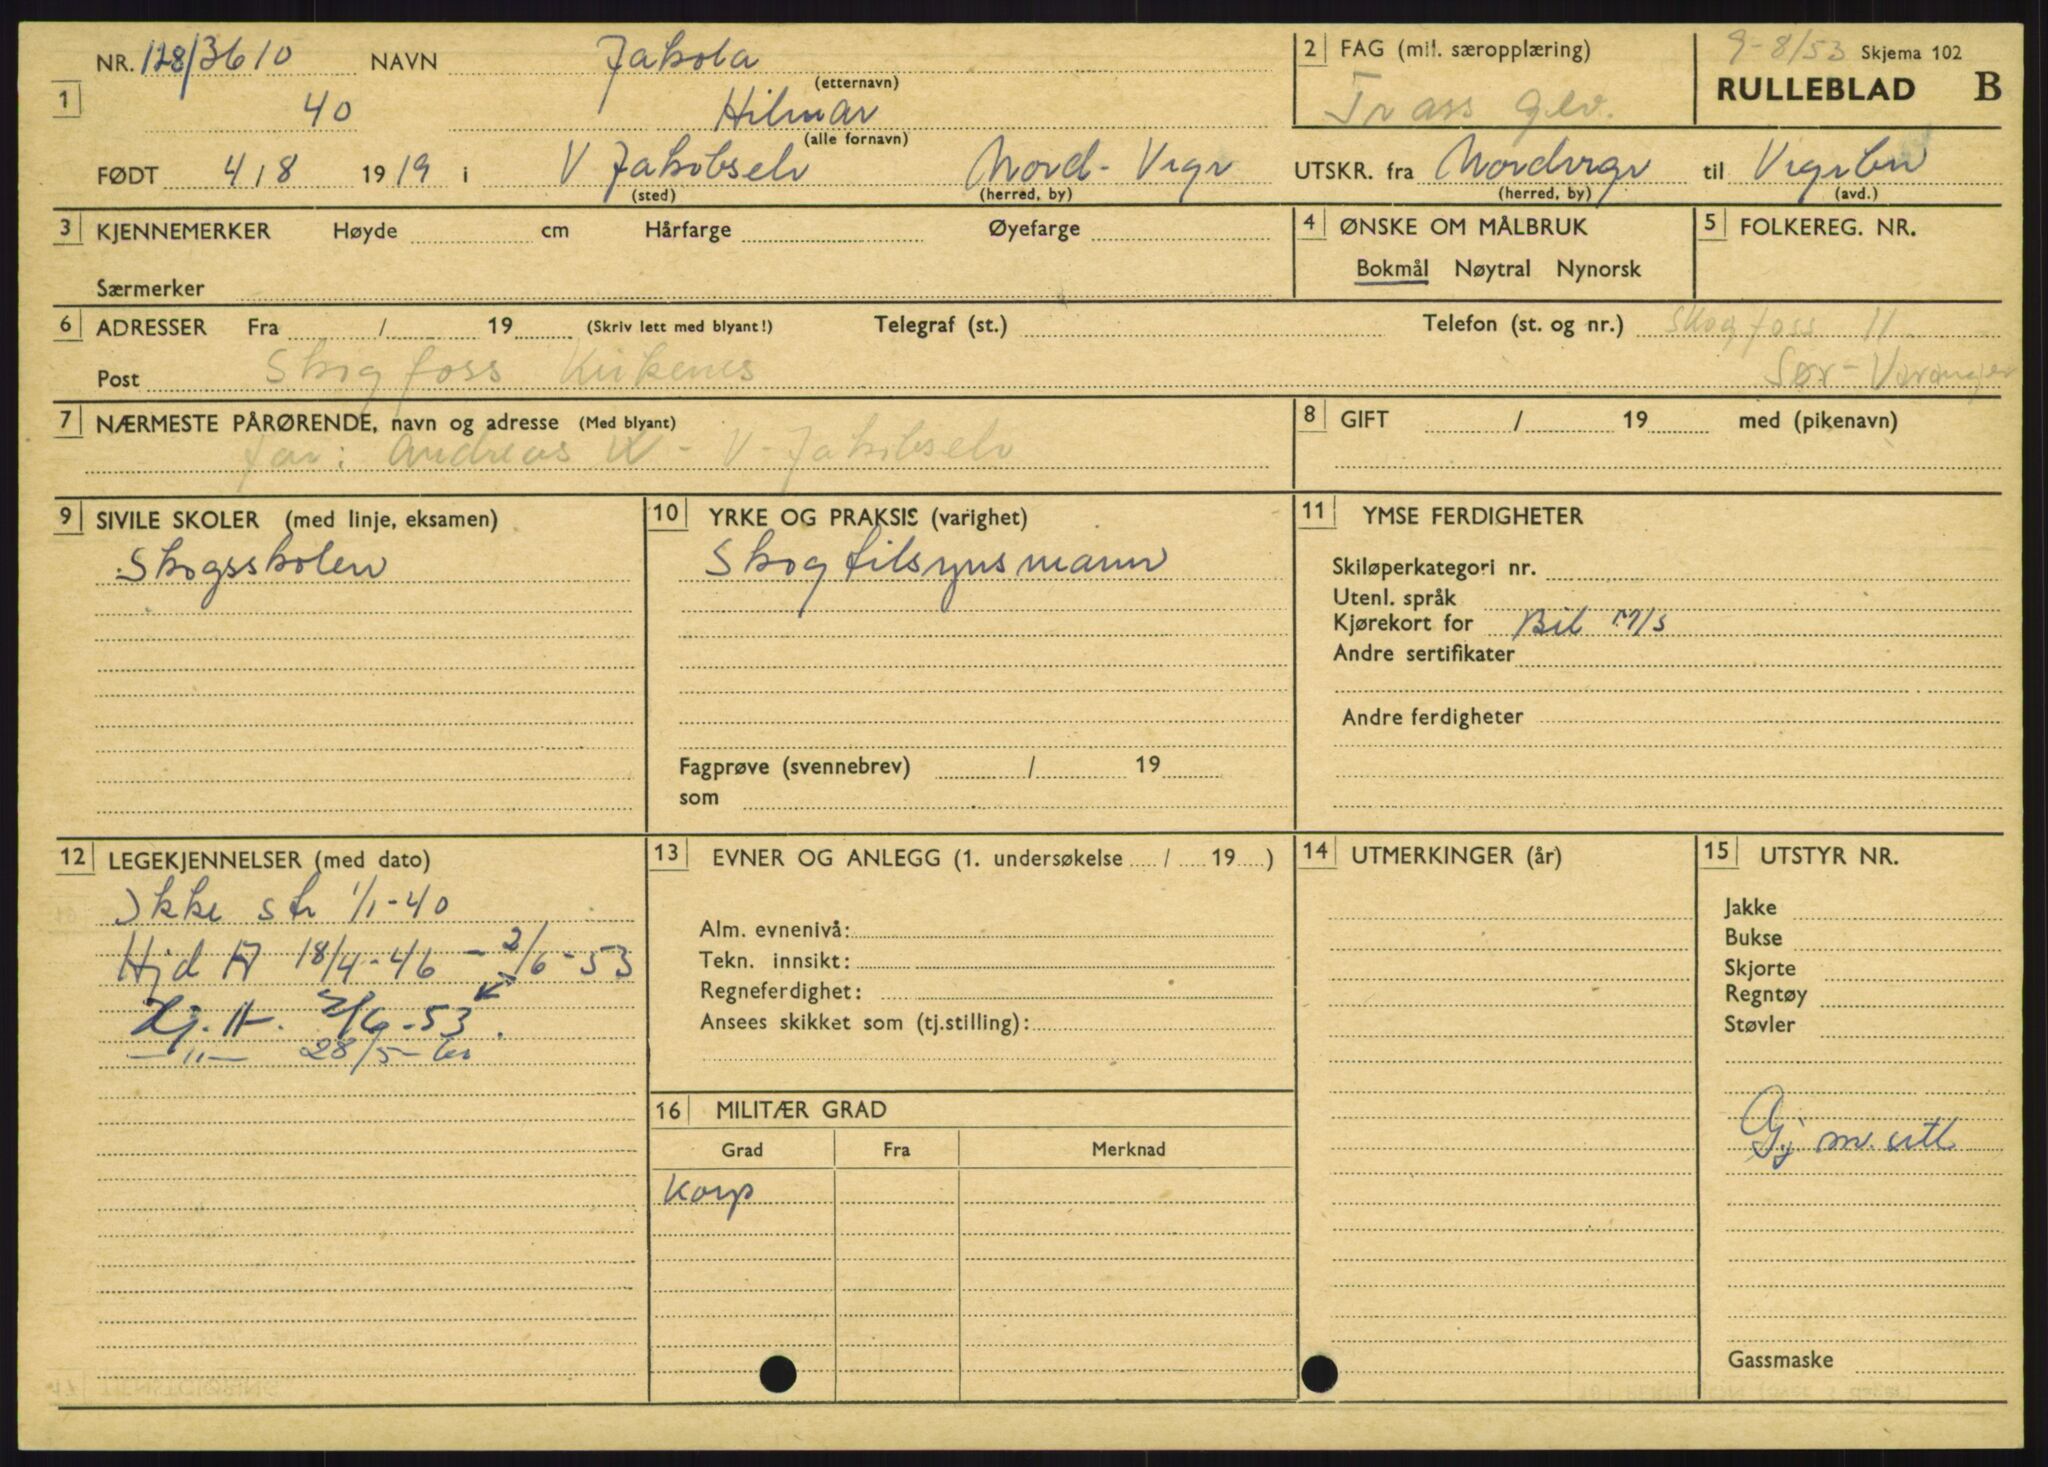 NR. 128/3610 NAVN Jakola 2 FAG (mil. særopplæring) 9-8/53 Skjema 102
(etternavn)
1 40 Hilmar Trass gev. RULLEBLAD B
(alle fornavn)
FØDT 4/8 1919 i V Jakobselv Nord-Vrgr UTSKR. fra Nordvrgr til Vrgrbn
(sted) (herred, by) (herred, by) (avd.)
3 KJENNEMERKER Høyde cm Hårfarge Øyefarge 4 ØNSKE OM MÅLBRUK 5 FOLKEREG. NR.
Bokmål Nøytral Nynorsk
Særmerker
6 ADRESSER Fra / 19 (Skriv lett med blyant!) Telegraf (st.) Telefon (st. og nr.) Skogfoss 11
Post Skogfoss Kirkenes Sør-Varanger
7 NÆRMESTE PÅRØRENDE, navn og adresse (Med blyant) 8 GIFT / 19 med (pikenavn)
far: Andreas - V-Jakobselv
9 SIVILE SKOLER (med linje, eksamen) 10 YRKE OG PRAKSIS (varighet) 11 YMSE FERDIGHETER
Skogsskolen Skogtilsynsmann
Skiløperkategori nr.
Utenl. språk
Kjørekort for Bil M/s
Andre sertifikater
Andre ferdigheter
Fagprøve (svennebrev) / 19
som
12 LEGEKJENNELSER (med dato) 13 EVNER OG ANLEGG (1. undersøkelse / 19 ) 14 UTMERKINGER (år) 15 UTSTYR NR.
Ikke str 1/1-40
Hjd A 18/4-46 - 2/6-53
Hj. A. 2/6-53.
—"— 28/5-
Alm. evnenivå:
Tekn. innsikt:
Regneferdighet:
Ansees skikket som (tj.stilling):
Jakke
Bukse
Skjorte
Regntøy
Støvler
Gj m. utl
16 MILITÆR GRAD
Grad Fra Merknad
Korp
Gassmaske